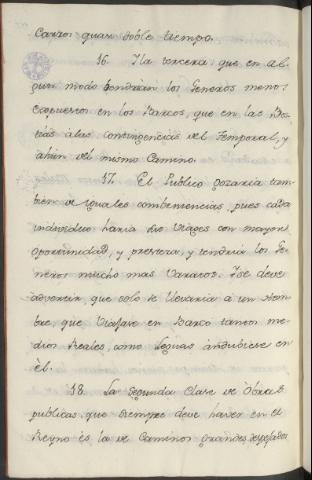 Carros quasi doble tiempo.
16. Y la tercera: que en al-
gun modo tendrian los Generos menos
expuestos en los Barcos, que en las Bes-
tias à las contingencias del Temporal, y
ahùn del mismo Camino.
17. El Publico gozaria tam-
bien de yguales combeniencias, pues cada
individuo haria sus viages con mayor
oportunidad, y presteza, y tendria los Ge-
neros mucho mas varatos. Y se deve
advertir, que solo se llevaria à un Hom-
bre, que viajase en Barco tantos me-
dios Reales, como leguas andubiese en
èl.
18. La segunda Clase de Obras
publicas que siempre deve haver en el
Reyno ès la de Caminos grandes despejados